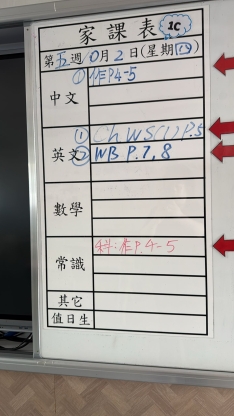 家課表 1C
第五週 10月2日(星期四)
中文 ①作P.4-5
① Ch WS(1) P.5
英文 ② WB P.7,8
數學
常識 科:作P.4-5
其它
值日生